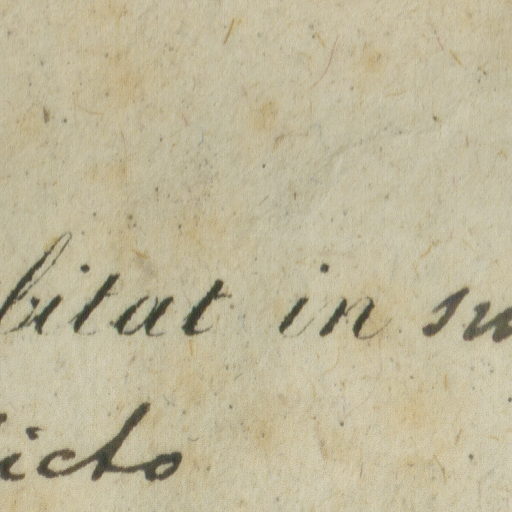 bitat in su
icto